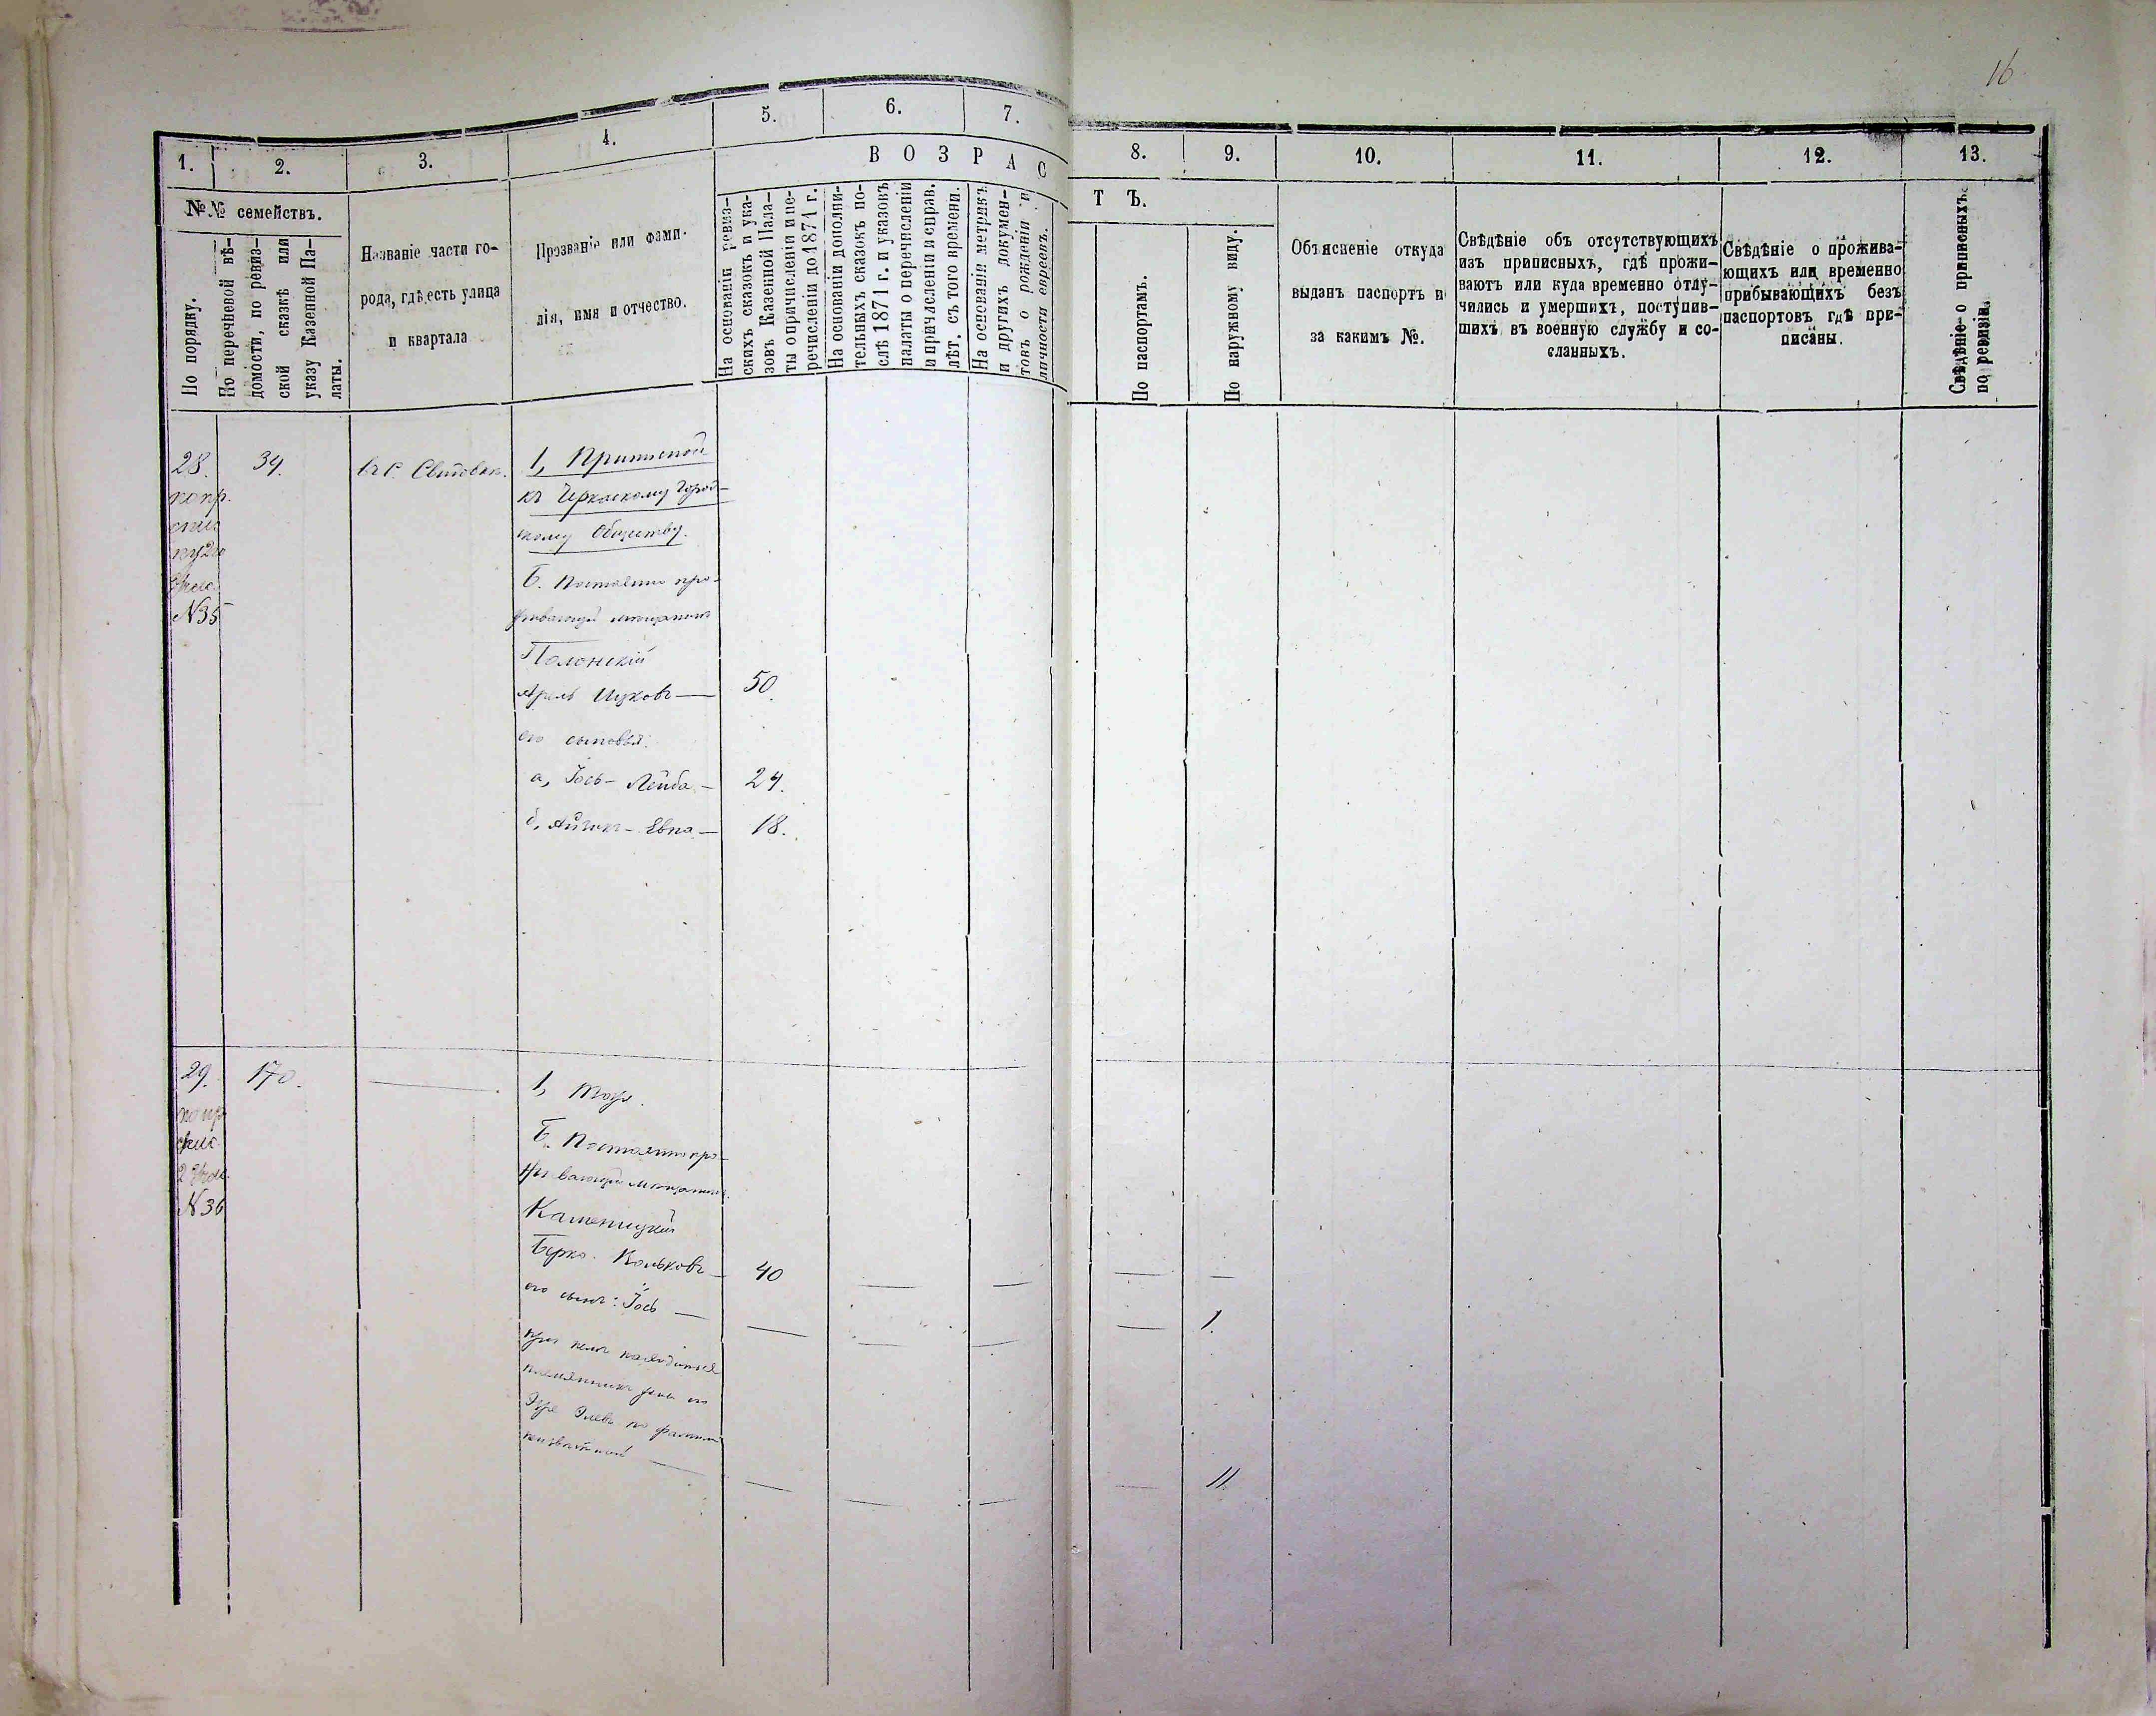 16
1.
2.
3.
4.
5.
6.
7.
8.
9.
10.
11.
12.
13.
№№ семействъ.
По порядку.
По перечневой вѣ-
домости, по ревиз-
ской сказкѣ или
указу Казенной Па-
латы.
Названіе части го-
рода, гдѣ есть улица
и квартала
Прозваніе или фами-
лія, имя и отчество.
ВОЗРАС
ТЪ.
На основаніи ревиз-
скихъ сказокъ и ука-
зовъ Казенной Пала-
ты о причисленіи и пе-
речисленіи до 1871 г.
На основаніи дополни-
тельныхъ сказокъ по-
слѣ 1871 г. и указовъ
палаты о перечисленіи
и причисленіи и справ.
лѣт. съ того времени.
На основаніи метрикъ
и другихъ докумен-
товъ о рожденіи и
личности евреевъ.
По паспортамъ.
По наружному виду.
Объясненіе откуда
выданъ паспортъ и
за какимъ №.
Свѣдѣніе объ отсутствующихъ
изъ приписныхъ, гдѣ прожи-
ваютъ или куда временно отлу-
чились и умершихъ, поступив-
шихъ въ военную службу и со-
сланныхъ.
Свѣдѣніе о прожива-
ющихъ или временно
прибывающихъ безъ
паспортовъ гдѣ при-
писаны.
Свѣдѣніе о приписныхъ
по ревизіи.
28.
по пр.
№35
34.
въ с. Свитовк.
1, Приписной
къ Черкаскому Город-
скому Обществу.
Б. Постоянно про-
живающій мещанинъ
Полонскій
Арель Ицковъ — 50.
его сыновья:
а, Іось-Лейба — 24.
б, — 18.
29.
по пр
№36
170.
1, Тоже.
Б. Постоянно про-
живающій мещанинъ.
Каменицкій
Берко Вольковъ — 40
его сынъ: Іось — 1.
при немъ находится
племянникъ
по фамиліи
11.